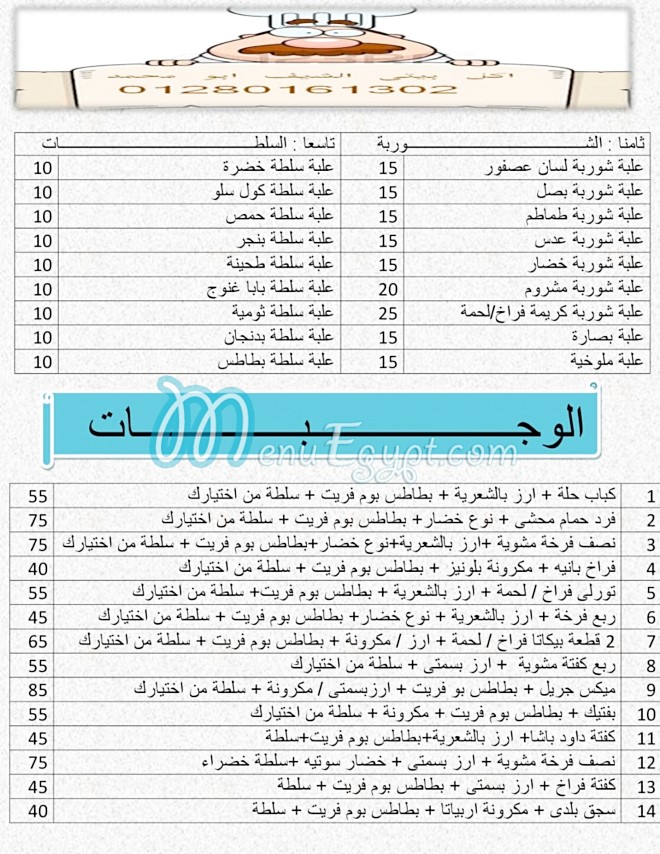 اكل بيتى الشيف ابو محمد
01280161302
ثامنا : الشـــــــــــــــــــــوربة تاسعا : السلطـــــــــــــــــــــــــات
علبة شوربة لسان عصفور 15 علبة سلطة خضرة 10
علبة شوربة بصل 15 علبة سلطة كول سلو 10
علبة شوربة طماطم 15 علبة سلطة حمص 10
علبة شوربة عدس 15 علبة سلطة بنجر 10
علبة شوربة خضار 15 علبة سلطة طحينة 10
علبة شوربة مشروم 20 علبة سلطة بابا غنوج 10
علبة شوربة كريمة فراخ/لحمة 25 علبة سلطة ثومية 10
علبة بصارة 15 علبة سلطة بدنجان 10
علبة ملوخية 15 علبة سلطة بطاطس 10
الوجــــــــــــبــــــــــــات
MenuEgypt.com
1 كباب حلة + ارز بالشعرية + بطاطس بوم فريت + سلطة من اختيارك 55
2 فرد حمام محشى + نوع خضار+ بطاطس بوم فريت + سلطة من اختيارك 75
3 نصف فرخة مشوية +ارز بالشعرية+نوع خضار+بطاطس بوم فريت + سلطة من اختيارك 75
4 فراخ بانيه + مكرونة بلونيز + بطاطس بوم فريت + سلطة من اختيارك 40
5 تورلى فراخ / لحمة + ارز بالشعرية + بطاطس بوم فريت+ سلطة من اختيارك 55
6 ربع فرخة + ارز بالشعرية + نوع خضار+ بطاطس بوم فريت + سلطة من اختيارك 45
7 2 قطعة بيكاتا فراخ / لحمة + ارز / مكرونة + بطاطس بوم فريت + سلطة من اختيارك 65
8 ربع كفتة مشوية + ارز بسمتى + سلطة من اختيارك 55
9 ميكس جريل + بطاطس بو فريت + ارزبسمتى / مكرونة + سلطة من اختيارك 85
10 بفتيك + بطاطس بوم فريت + مكرونة + سلطة من اختيارك 55
11 كفتة داود باشا+ ارز بالشعرية+بطاطس بوم فريت+سلطة 45
12 نصف فرخة مشوية + ارز بسمتى + خضار سوتيه +سلطة خضراء 75
13 كفتة فراخ + ارز بسمتى + بطاطس بوم فريت + سلطة 45
14 سجق بلدى + مكرونة اربياتا + بطاطس بوم فريت + سلطة 40